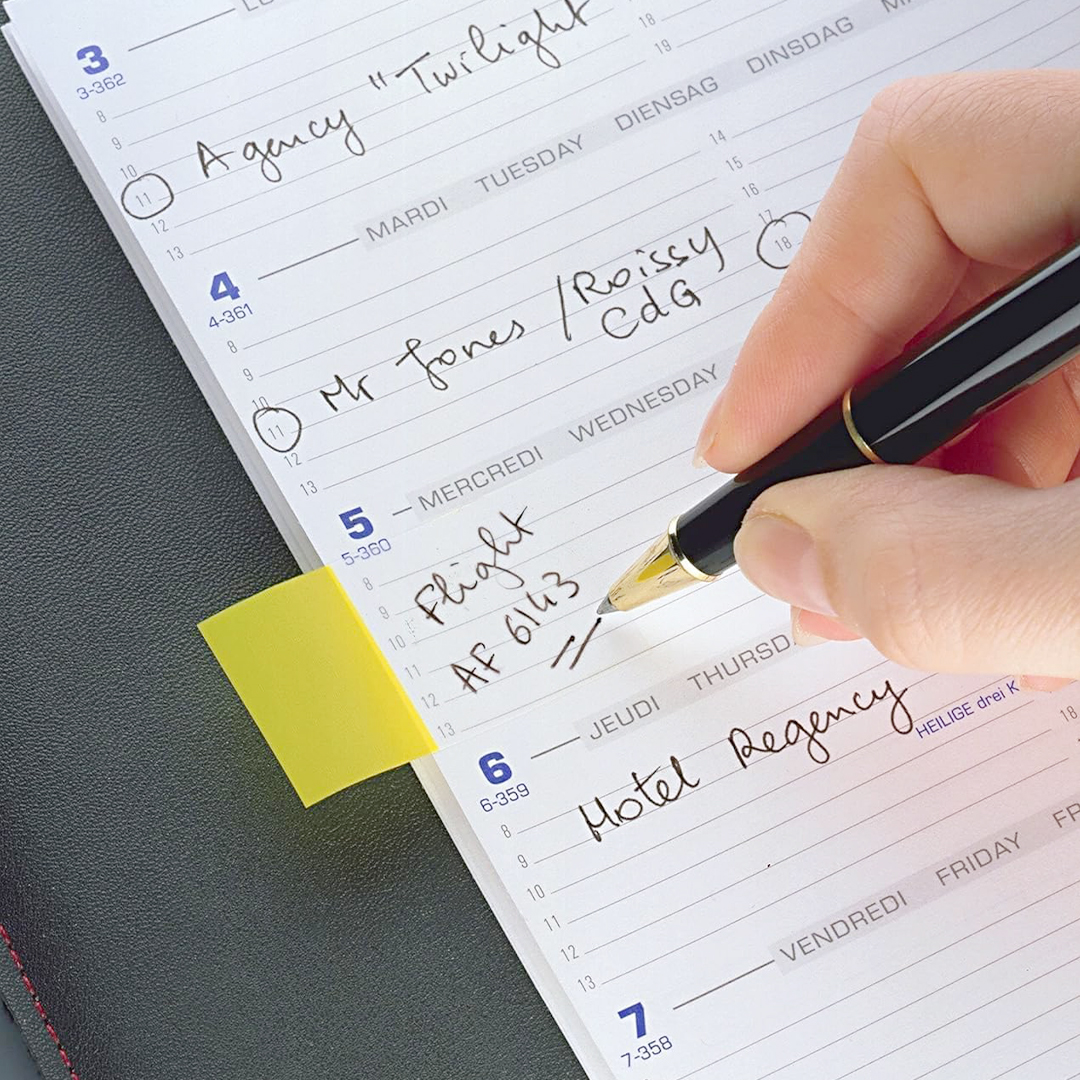 3
3-362
8
9
10
11
12
13
18
19
Agency "Twilight
MARDI TUESDAY DIENSAG DINSDAG
4
4-361
8
9
10
11
12
13
14
15
16
17
18
Mr Jones / Roissy
CdG
MERCREDI WEDNESDAY
5
5-360
8
9
10
11
12
13
Flight
AF 6143
JEUDI THURSD
6
6-359
HEILIGE drei K
8
9
10
11
12
13
18
Hotel Regency
VENDREDI FRIDAY FR
7
7-358